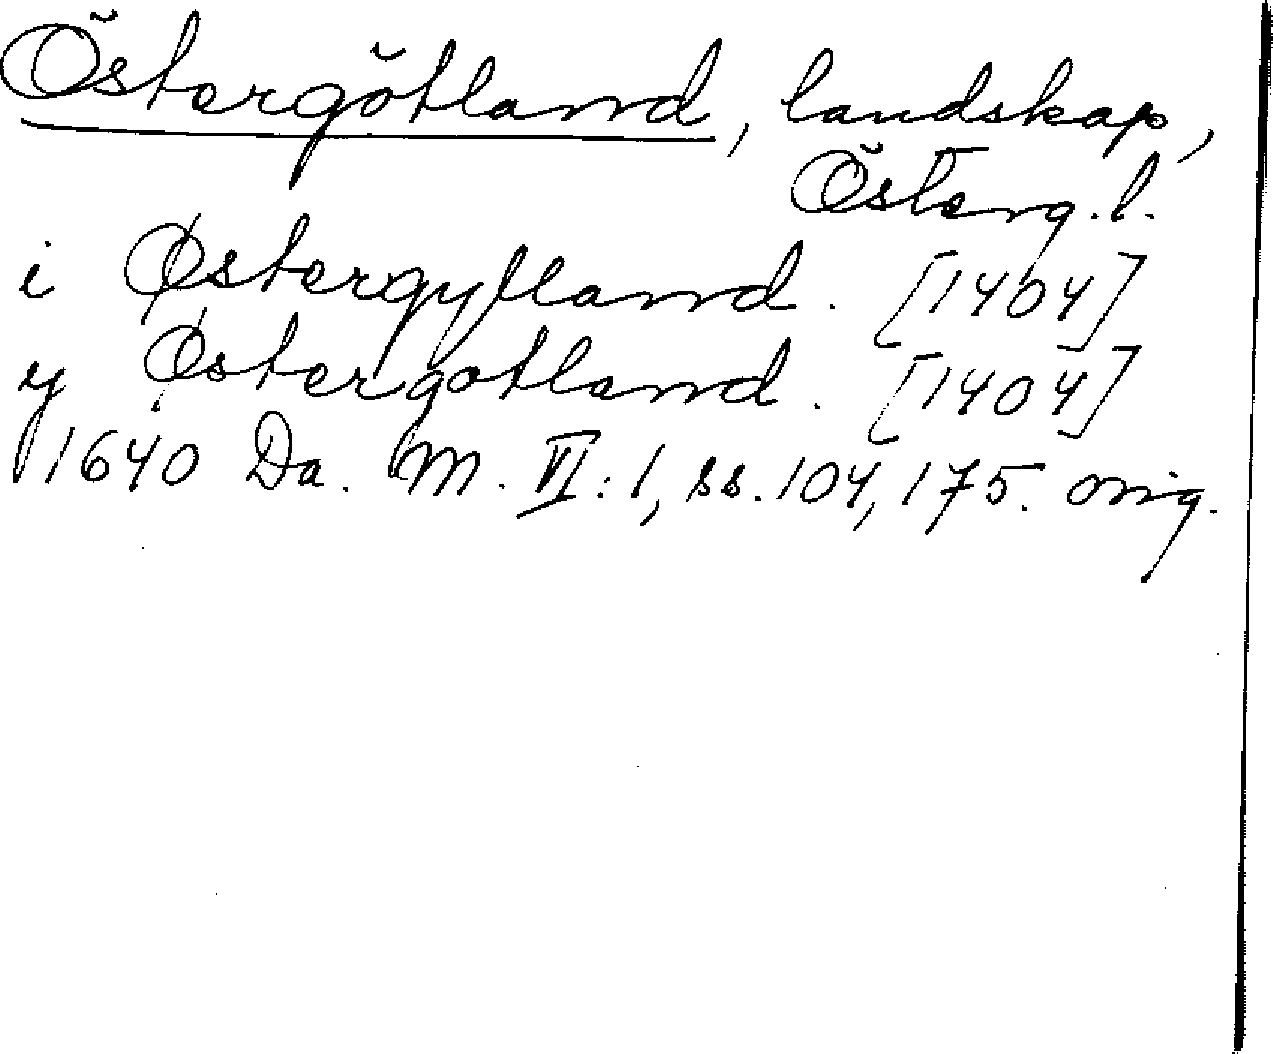 Östergötland, landskap,
Österg. l.
i Østergytland. [1404]
y Østergotland. [1404]
1640 Da. M. VI: 1, ss. 104, 175. orig.